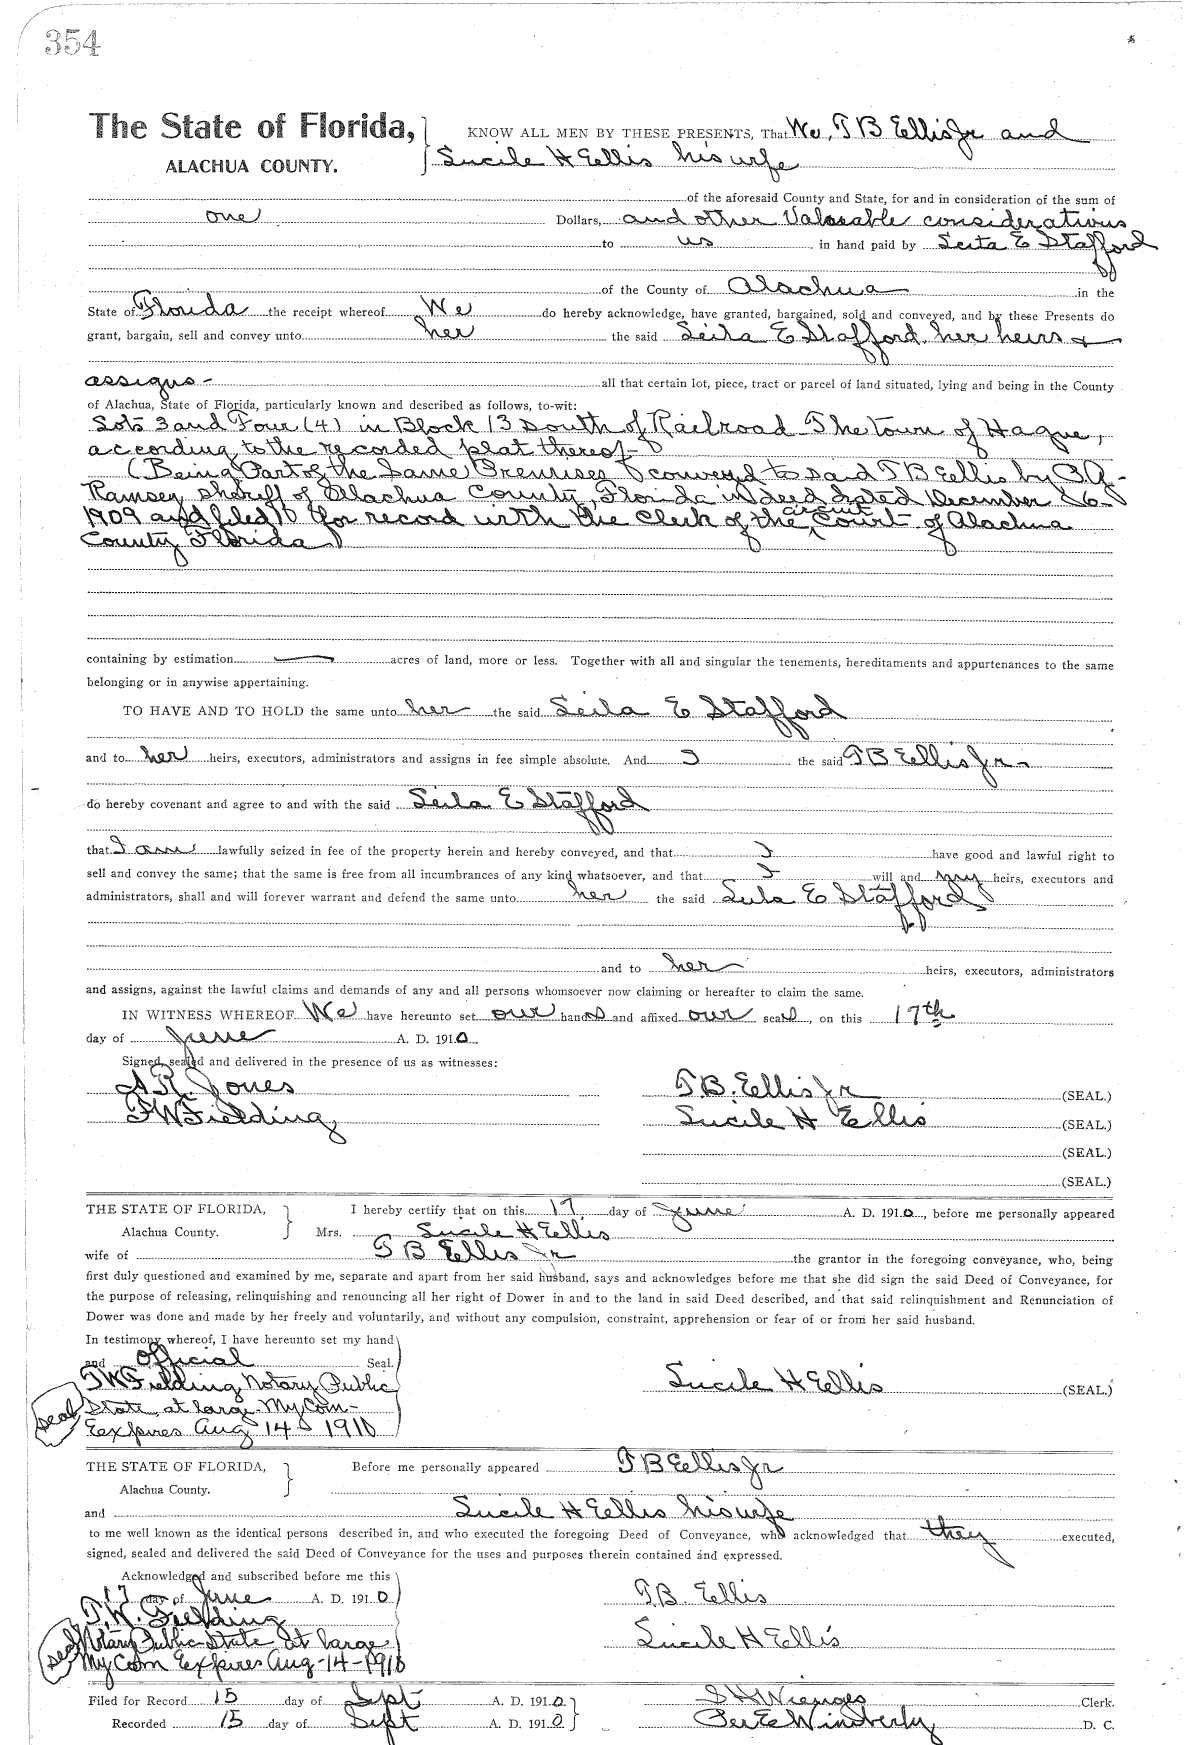 354
The State of Florida, KNOW ALL MEN BY THESE PRESENTS, That We, T B Ellis Jr and
ALACHUA COUNTY. Lucile H Ellis his wife
of the aforesaid County and State, for and in consideration of the sum of
one Dollars, and other Valuable considerations
to us in hand paid by Leila E Stafford
of the County of Alachua in the
State of Florida the receipt whereof We do hereby acknowledge, have granted, bargained, sold and conveyed, and by these Presents do
grant, bargain, sell and convey unto her the said Leila E Stafford her heirs &
assigns - all that certain lot, piece, tract or parcel of land situated, lying and being in the County
of Alachua, State of Florida, particularly known and described as follows, to-wit:
Lots 3 and Four (4) in Block 13 South of Railroad The Town of Hague,
according to the recorded plat thereof-
(Being Part of the Same Premises conveyed to said T B Ellis by
Ramsey Sheriff of Alachua County, Florida in deed dated December
1909 and filed for record with the Clerk of the circuit Court of Alachua
County Florida)
containing by estimation acres of land, more or less. Together with all and singular the tenements, hereditaments and appurtenances to the same
belonging or in anywise appertaining.
TO HAVE AND TO HOLD the same unto her the said Leila E Stafford
and to her heirs, executors, administrators and assigns in fee simple absolute. And I the said T B Ellis Jr-
do hereby covenant and agree to and with the said Leila E Stafford
that I am lawfully seized in fee of the property herein and hereby conveyed, and that I have good and lawful right to
sell and convey the same; that the same is free from all incumbrances of any kind whatsoever, and that I will and my heirs, executors and
administrators, shall and will forever warrant and defend the same unto her the said Leila E Stafford
and to her heirs, executors, administrators
and assigns, against the lawful claims and demands of any and all persons whomsoever now claiming or hereafter to claim the same.
IN WITNESS WHEREOF We have hereunto set our hands and affixed our seals, on this 17th
day of June A. D. 1910.
Signed, sealed and delivered in the presence of us as witnesses:
A R. Jones T. B. Ellis Jr (SEAL.)
F W Fielding Lucile H Ellis (SEAL.)
(SEAL.)
(SEAL.)
THE STATE OF FLORIDA, I hereby certify that on this 17 day of June A. D. 1910, before me personally appeared
Alachua County. Mrs. Lucile H Ellis
wife of T B Ellis Jr the grantor in the foregoing conveyance, who, being
first duly questioned and examined by me, separate and apart from her said husband, says and acknowledges before me that she did sign the said Deed of Conveyance, for
the purpose of releasing, relinquishing and renouncing all her right of Dower in and to the land in said Deed described, and that said relinquishment and Renunciation of
Dower was done and made by her freely and voluntarily, and without any compulsion, constraint, apprehension or fear of or from her said husband.
In testimony whereof, I have hereunto set my hand
and official Seal.
F W Fielding Notary Public Lucile H Ellis (SEAL.)
seal State at large. My Com-
Expires Aug 14 1910
THE STATE OF FLORIDA, Before me personally appeared T B Ellis Jr
Alachua County.
and Lucile H Ellis his wife
to me well known as the identical persons described in, and who executed the foregoing Deed of Conveyance, who acknowledged that they executed,
signed, sealed and delivered the said Deed of Conveyance for the uses and purposes therein contained and expressed.
Acknowledged and subscribed before me this
17 day of June A. D. 1910 T.B. Ellis
F. W. Fielding
seal Notary Public State at large Lucile H Ellis
My Com Expires Aug-14-1910
Filed for Record 15 day of Sept A. D. 1910. S H Wienges Clerk.
Recorded 15 day of Sept A. D. 1910 Per E Wimberly D. C.